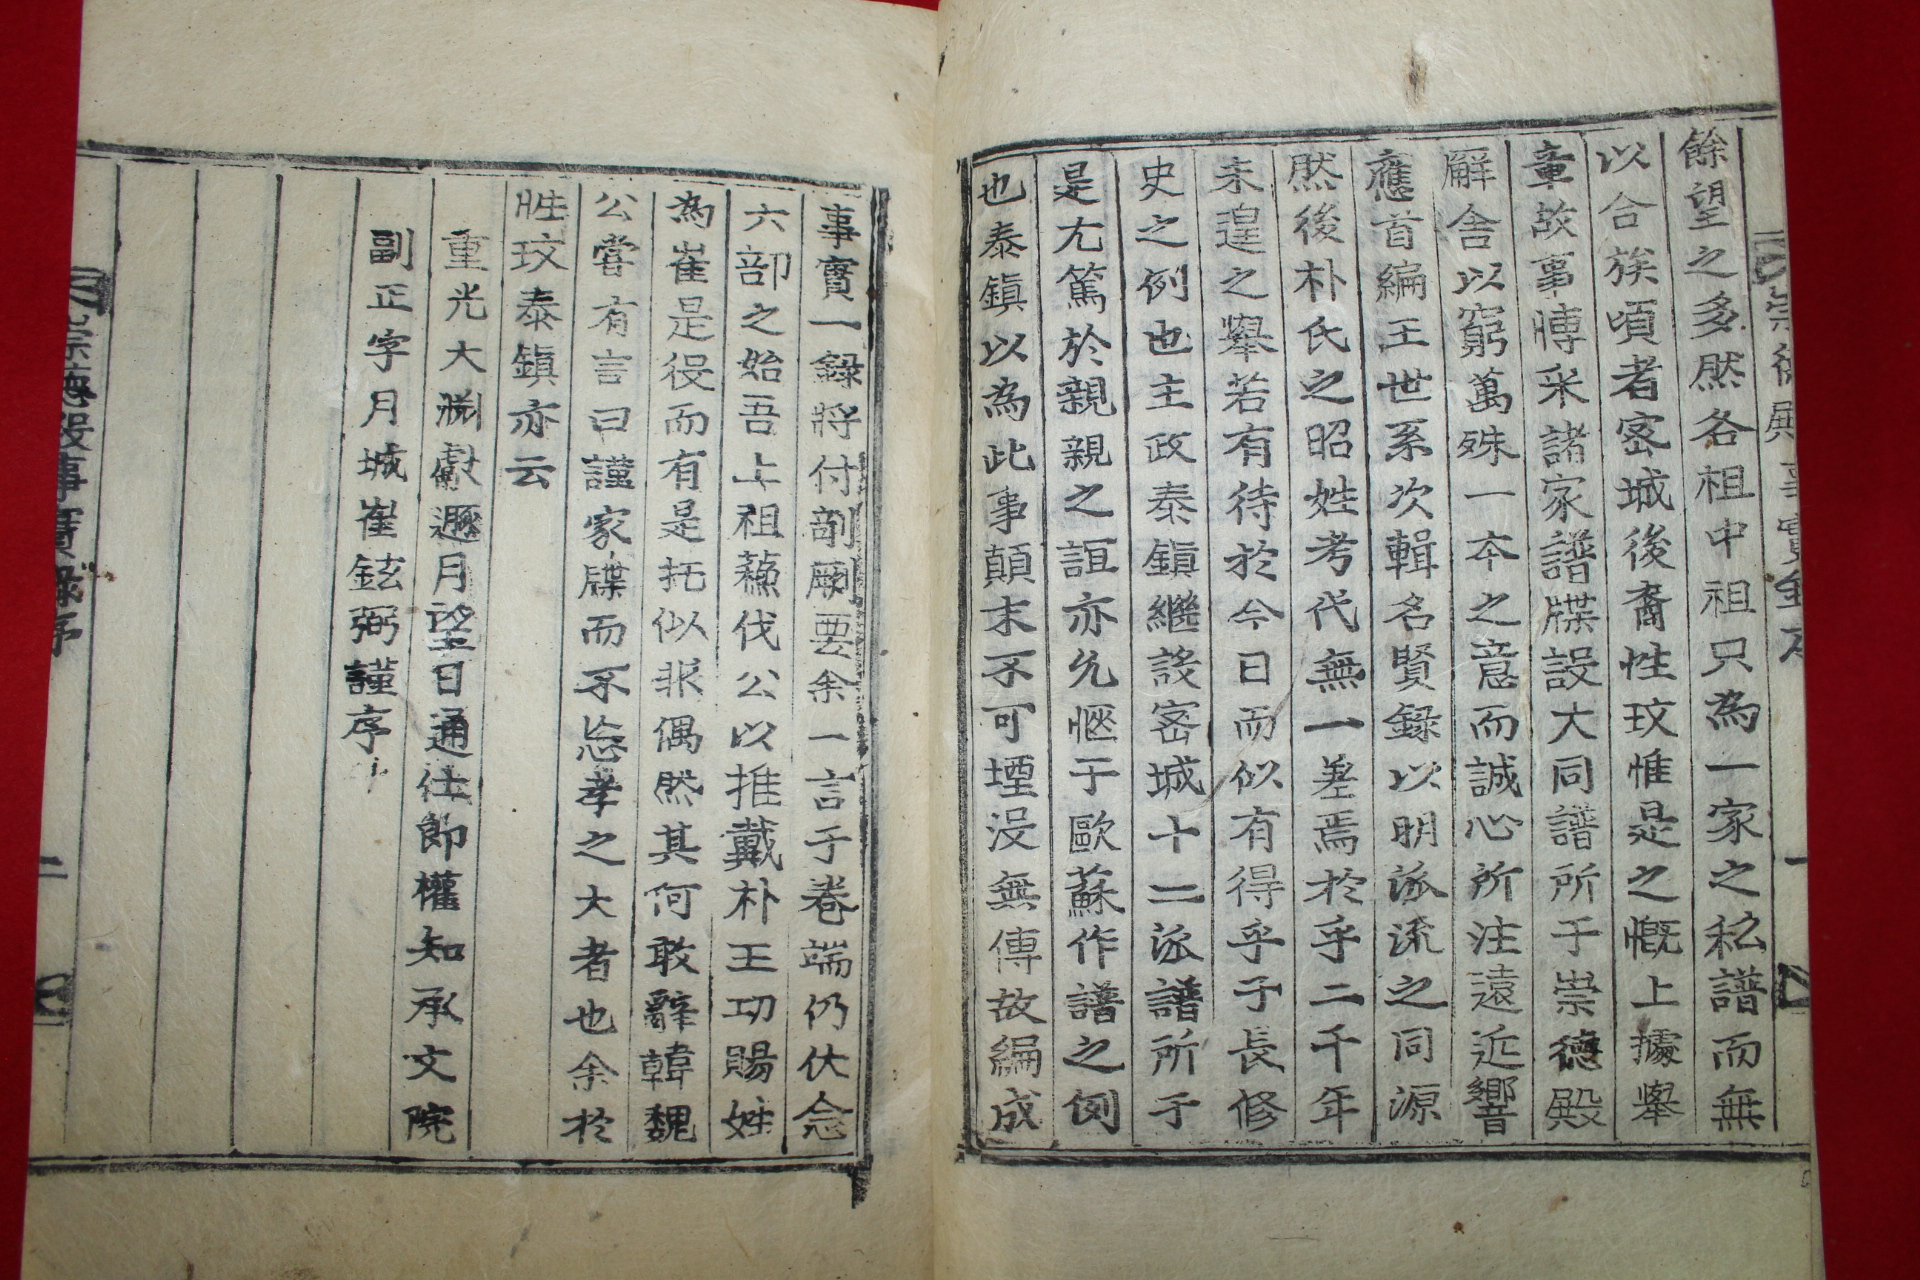 餘望之多然各祖中祖只為一家之私譜而無
以合族頃者密城後裔性玟惟是之慨上據舉
章故事博采諸家譜牒設大同譜所于崇德殿
廨舍以窮萬殊一本之意而誠心所注遠近響
應首編王世系次輯名賢錄以明派流之同源
然後朴氏之昭姓考代無一差焉於乎二千年
未遑之舉若有待於今日而似有得乎子長修
史之例也主政泰鎮繼設密城十二派譜所于
是尤篤於親親之誼亦允愜于歐蘇作譜之例
也泰鎮以為此事顛末不可堙沒無傳故編成
事實一錄將付剞劂要余一言于卷端仍伏念
六部之始吾上祖蘓伐公以推戴朴王功賜姓
為崔是役而有是托似非偶然其何敢辭韓魏
公嘗有言曰謹家牒而不忘孝之大者也余於
性玟泰鎮亦云
重光大淵獻 月望日通仕郎權知承文院
副正字月城崔鉉弼謹序
崇德殿事實錄序
二
崇德殿事實錄序
一